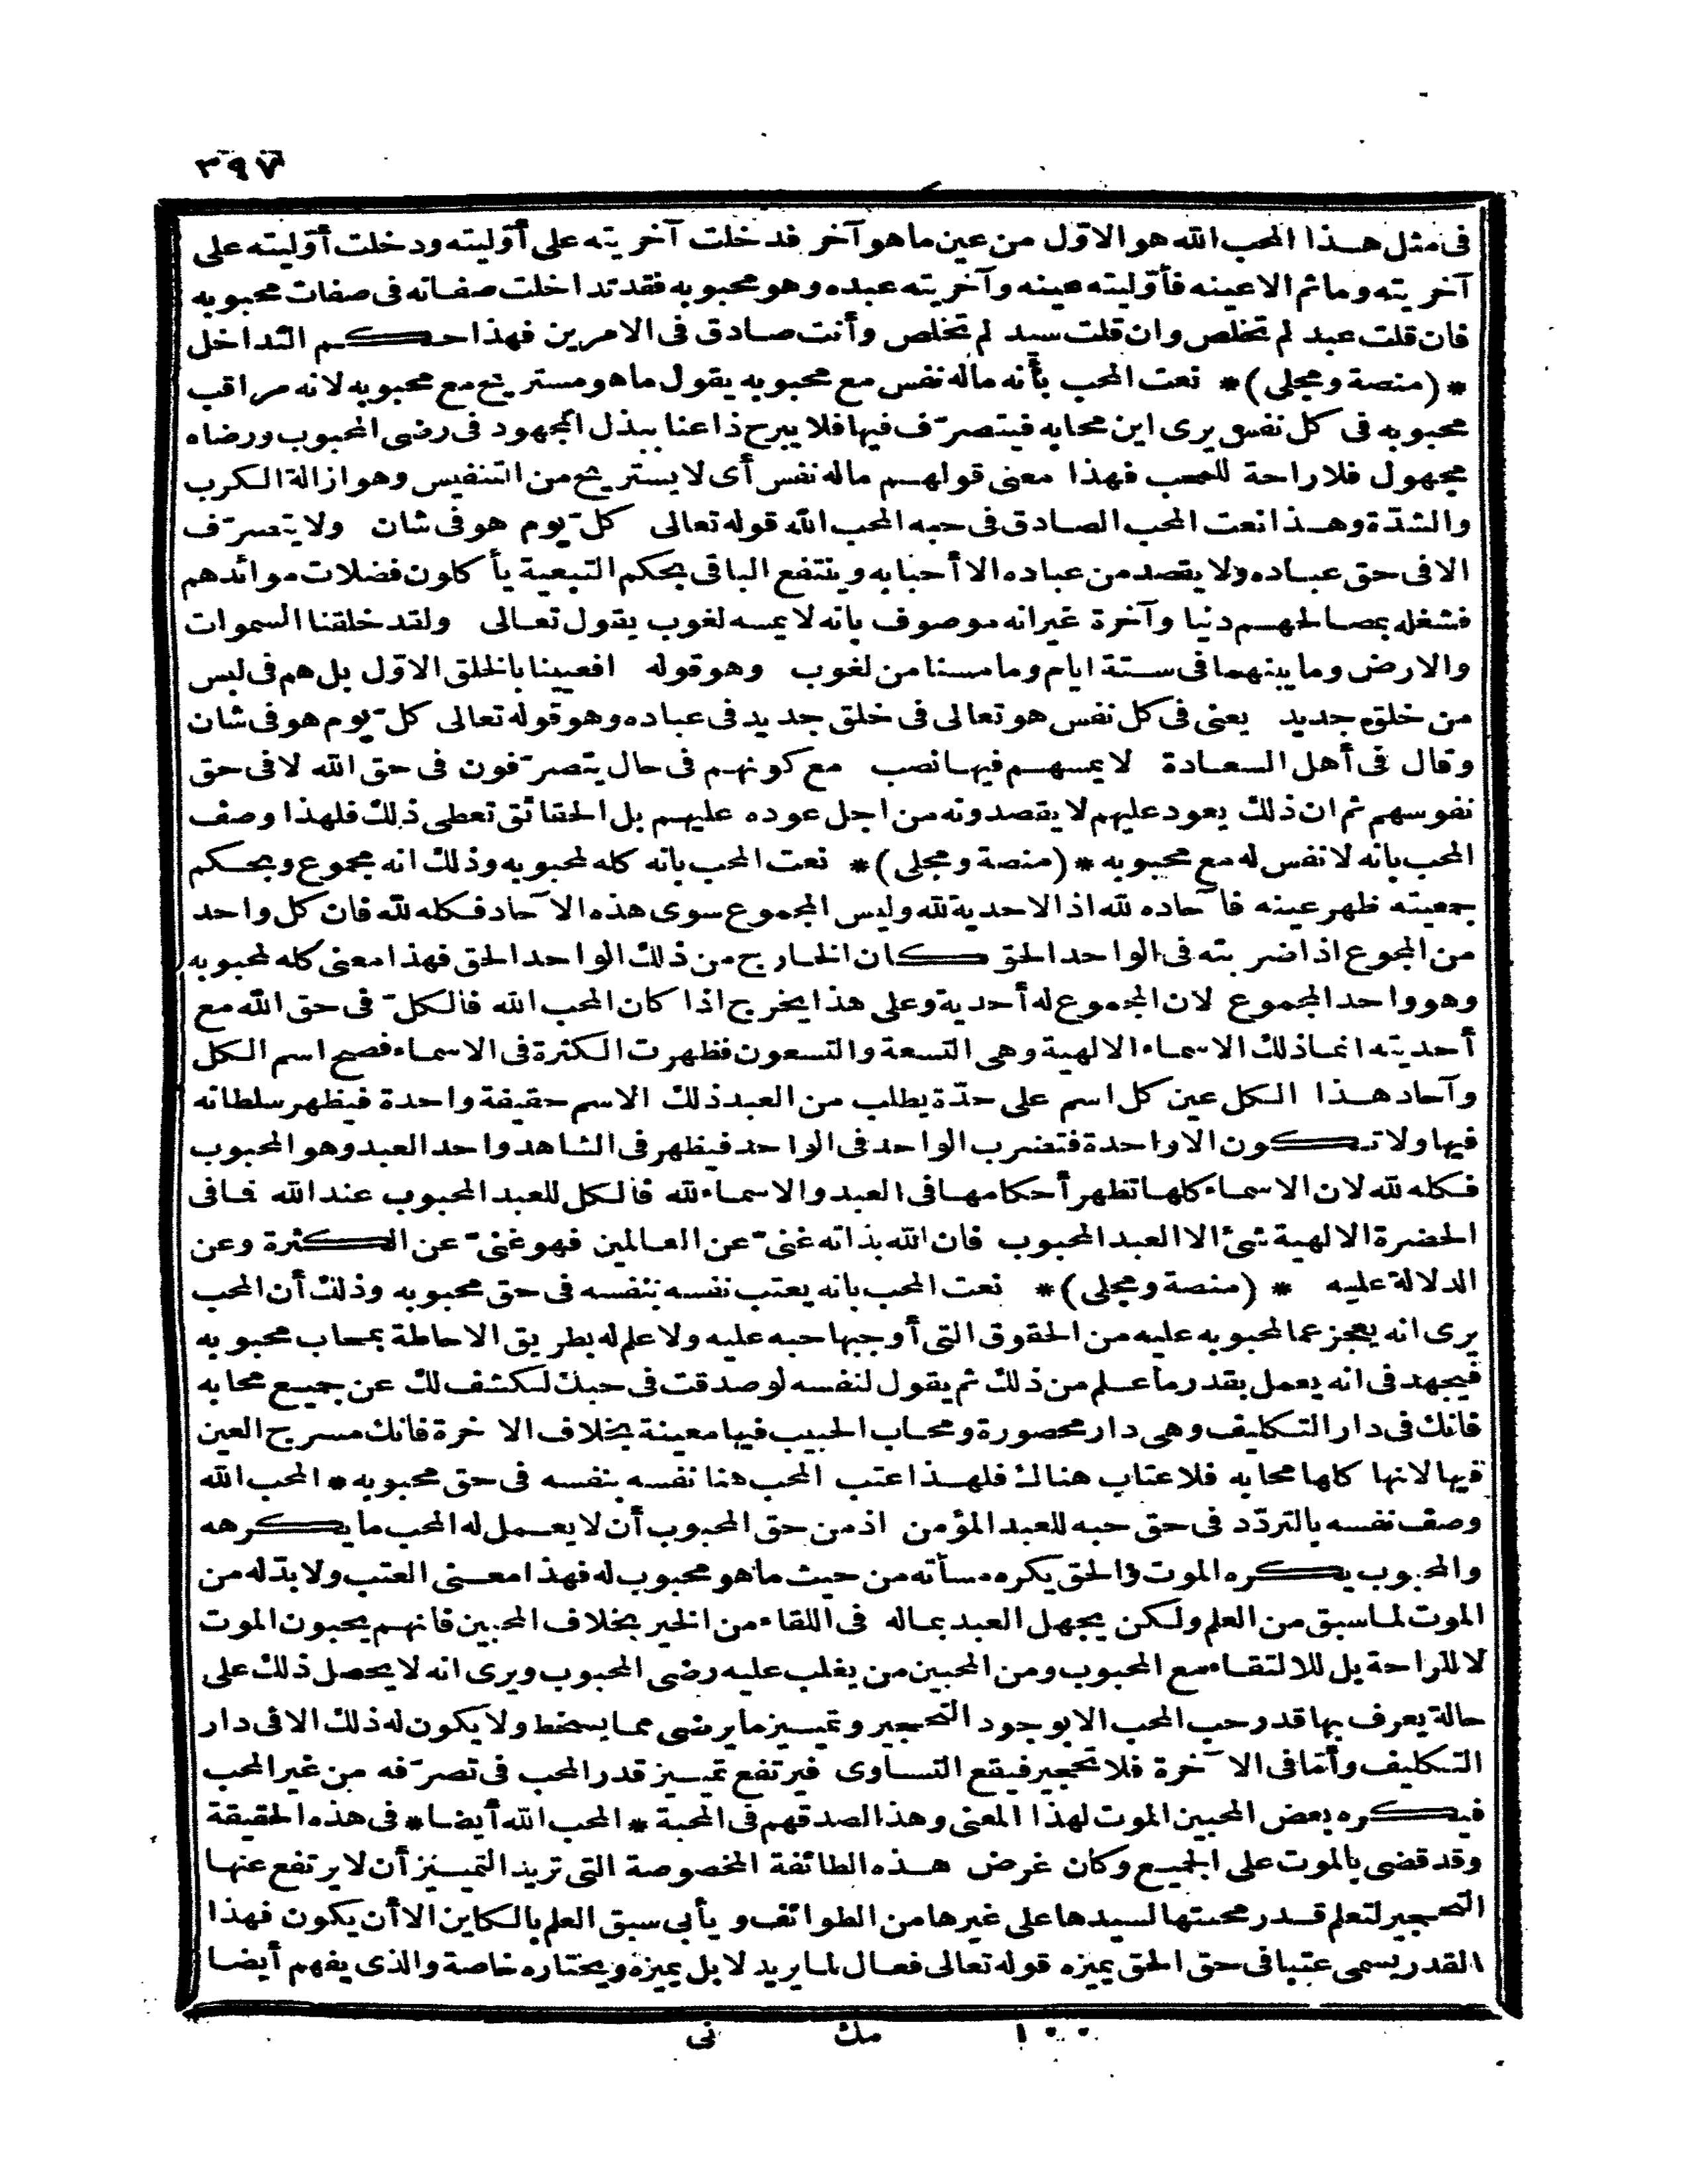 ٣٩٧
فى مثل هذا المحب الله هو الاوّل من عين ما هو آخر فدخلت آخريته على أوّليته ودخلت أوّليته على
آخريته وماثم الاعينه فأوّليته عينه وآخريته عبده وهو محبوبه فقد تداخلت صفاته فى صفات محبوبه
فان قلت عبد لم تخلص وان قلت سيد لم تخلص وأنت صادق فى الامرين فهذا حكم التداخل
*(منصة ومجلى)* نعت المحب بأنه ماله نفس مع محبوبه يقول ما هو مستريح مع محبوبه لانه مراقب
محبوبه فى كل نفس يرى اين محابه فيتصرّف فيها فلا يبرح ذا عنا ببذل المجهود فى رضى المحبوب ورضاه
مجهول فلا راحة للمحب فهذا معنى قولهم ماله نفس أى لا يستريح من التنفيس وهو ازالة الكرب
والشدّة وهذا نعت المحب الصادق فى حبه المحب الله قوله تعالى كلّ يوم هو فى شان ولا يتصرّف
الا فى حق عباده ولا يقصد من عباده الا أحبابه وينتفع الباقى بحكم التبعية يأكلون فضلات موائدهم
فشغله بمصالحهم دنيا وآخرة غير انه موصوف بانه لا يمسه لغوب يقول تعالى ولقد خلقنا السموات
والارض وما بينهما فى ستة ايام وما مسنا من لغوب وهو قوله افعيينا بالخلق الاوّل بل هم فى لبس
من خلق جديد يعنى فى كل نفس هو تعالى فى خلق جديد فى عباده وهو قوله تعالى كلّ يوم هو فى شان
وقال فى أهل السعادة لا يمسهم فيها نصب مع كونهم فى حال يتصرّفون فى حق الله لا فى حق
نفوسهم ثم ان ذلك يعود عليهم لا يقصدونه من اجل عوده عليهم بل الحقائق تعطى ذلك فلهذا وصف
المحب بانه لا نفس له مع محبوبه *(منصة ومجلى)* نعت المحب بانه كله لمحبوبه وذلك انه مجموع وبحكم
جمعيته ظهر عينه فا ٓحاده لله اذ الاحدية لله وليس المجموع سوى هذه الا ٓحاد فكله لله فان كل واحد
من المجموع اذا ضربته فى الواحد الحق كان الخارج من ذلك الواحد الحق فهذا معنى كله لمحبوبه
وهو واحد المجموع لان المجموع له أحدية وعلى هذا يخرج اذا كان المحب الله فالكلّ فى حق الله مع
أحديته انما ذلك الاسماء الالهية وهى التسعة والتسعون فظهرت الكثرة فى الاسماء فصح اسم الكل
وآحاد هذا الكل عين كل اسم على حدّة يطلب من العبد ذلك الاسم حقيقة واحدة فيظهر سلطانه
فيها ولا تكون الا واحدة فتضرب الواحد فى الواحد فيظهر فى الشاهد واحد العبد وهو المحبوب
فكله لله لان الاسماء كلها تظهر أحكامها فى العبد والاسماء لله فالكل للعبد المحبوب عند الله فما فى
الحضرة الالهية شئ الا العبد المحبوب فان الله بذاته غنىّ عن العالمين فهو غنىّ عن الكثرة وعن
الدلالة عليه *(منصة ومجلى)* نعت المحب بانه يعتب نفسه بنفسه فى حق محبوبه وذلك أن المحب
يرى انه يعجز عما لمحبوبه عليه من الحقوق التى أوجبها حبه عليه ولا علم له بطريق الاحاطة بمحاب محبوبه
فيجهد فى انه يعمل بقدر ما علم من ذلك ثم يقول لنفسه لو صدقت فى حبك لكشف لك عن جميع محابه
فانك فى دار التكليف وهى دار محصورة ومحاب الحبيب فيها معينة بخلاف الا خرة فانك مسرح العين
فيها لانها كلها محابه فلا عتاب هنالك فلهذا عتب المحب هنا نفسه بنفسه فى حق محبوبه * المحب الله
وصف نفسه بالتردّد فى حق حبه للعبد المؤمن اذ من حق المحبوب أن لا يعمل له المحب ما يكرهه
والمحبوب يكره الموت والحق يكره مسأته من حيث ما هو محبوب له فهذا معنى العتب ولا بدّله من
الموت لما سبق من العلم ولكن يجهل العبد بماله فى اللقاء من الخير بخلاف المحبين فانهم يحبون الموت
لا للراحة بل للالتقاء مع المحبوب ومن المحبين من يغلب عليه رضى المحبوب ويرى انه لا يحصل ذلك على
حالة يعرف بها قدر حب المحب الا بوجود التحجير وتمييز ما يرضى مما يسخط ولا يكون له ذلك الا فى دار
التكليف وأمّا فى الا ٓخرة فلا تحجير فيقع التساوى فيرتفع تمييز قدر المحب فى تصرّفه من غير المحب
فيكره بعض المحبين الموت لهذا المعنى وهذا لصدقهم فى المحبة * المحب الله أيضا * فى هذه الحقيقة
وقد قضى بالموت على الجميع وكان غرض هذه الطائفة المخصوصة التى تريد التمييز أن لا يرتفع عنها
التحجير لتعلم قدر محبتها لسيدها على غيرها من الطوائف ويأبى سبق العلم بالكاين الا أن يكون فهذا
القدر يسمى عتبا فى حق الحق يميزه قوله تعالى فعال لما يريد لا بل يميزه ويختاره خاصة والذى يفهم أيضا
١٠٠ مك نى